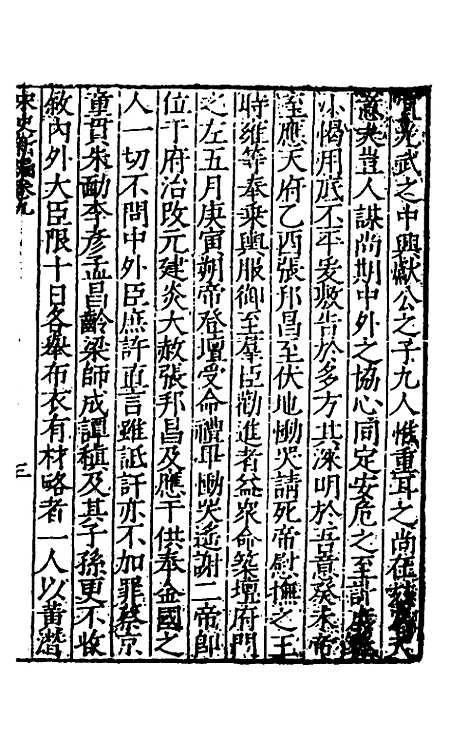 光武之中興獻公之子九人惟重耳之尚在茲為天
意夫豈人謀尚期中外之協心同定安危之至計庶
小愒用底丕平爰敷告於多方其深明於吾意癸未帝
至應天府乙酉張邦昌至伏地慟哭請死帝慰撫之王
時雍等奉乗輿服御至羣臣勸進者益衆命築壇府門
之左五月庚寅朔帝登壇受命禮畢慟哭遙謝二帝即
位于府治改元建炎大赦張邦昌及應干供奉金國之
人一切不問中外臣庶許直言雖詆訐亦不加罪蔡京
童貫朱勔李彦孟昌齡梁師成譚稹及其子孫更不收
敘內外大臣限十日各舉布衣有材略者一人以黃潛
宋史新編卷九
三